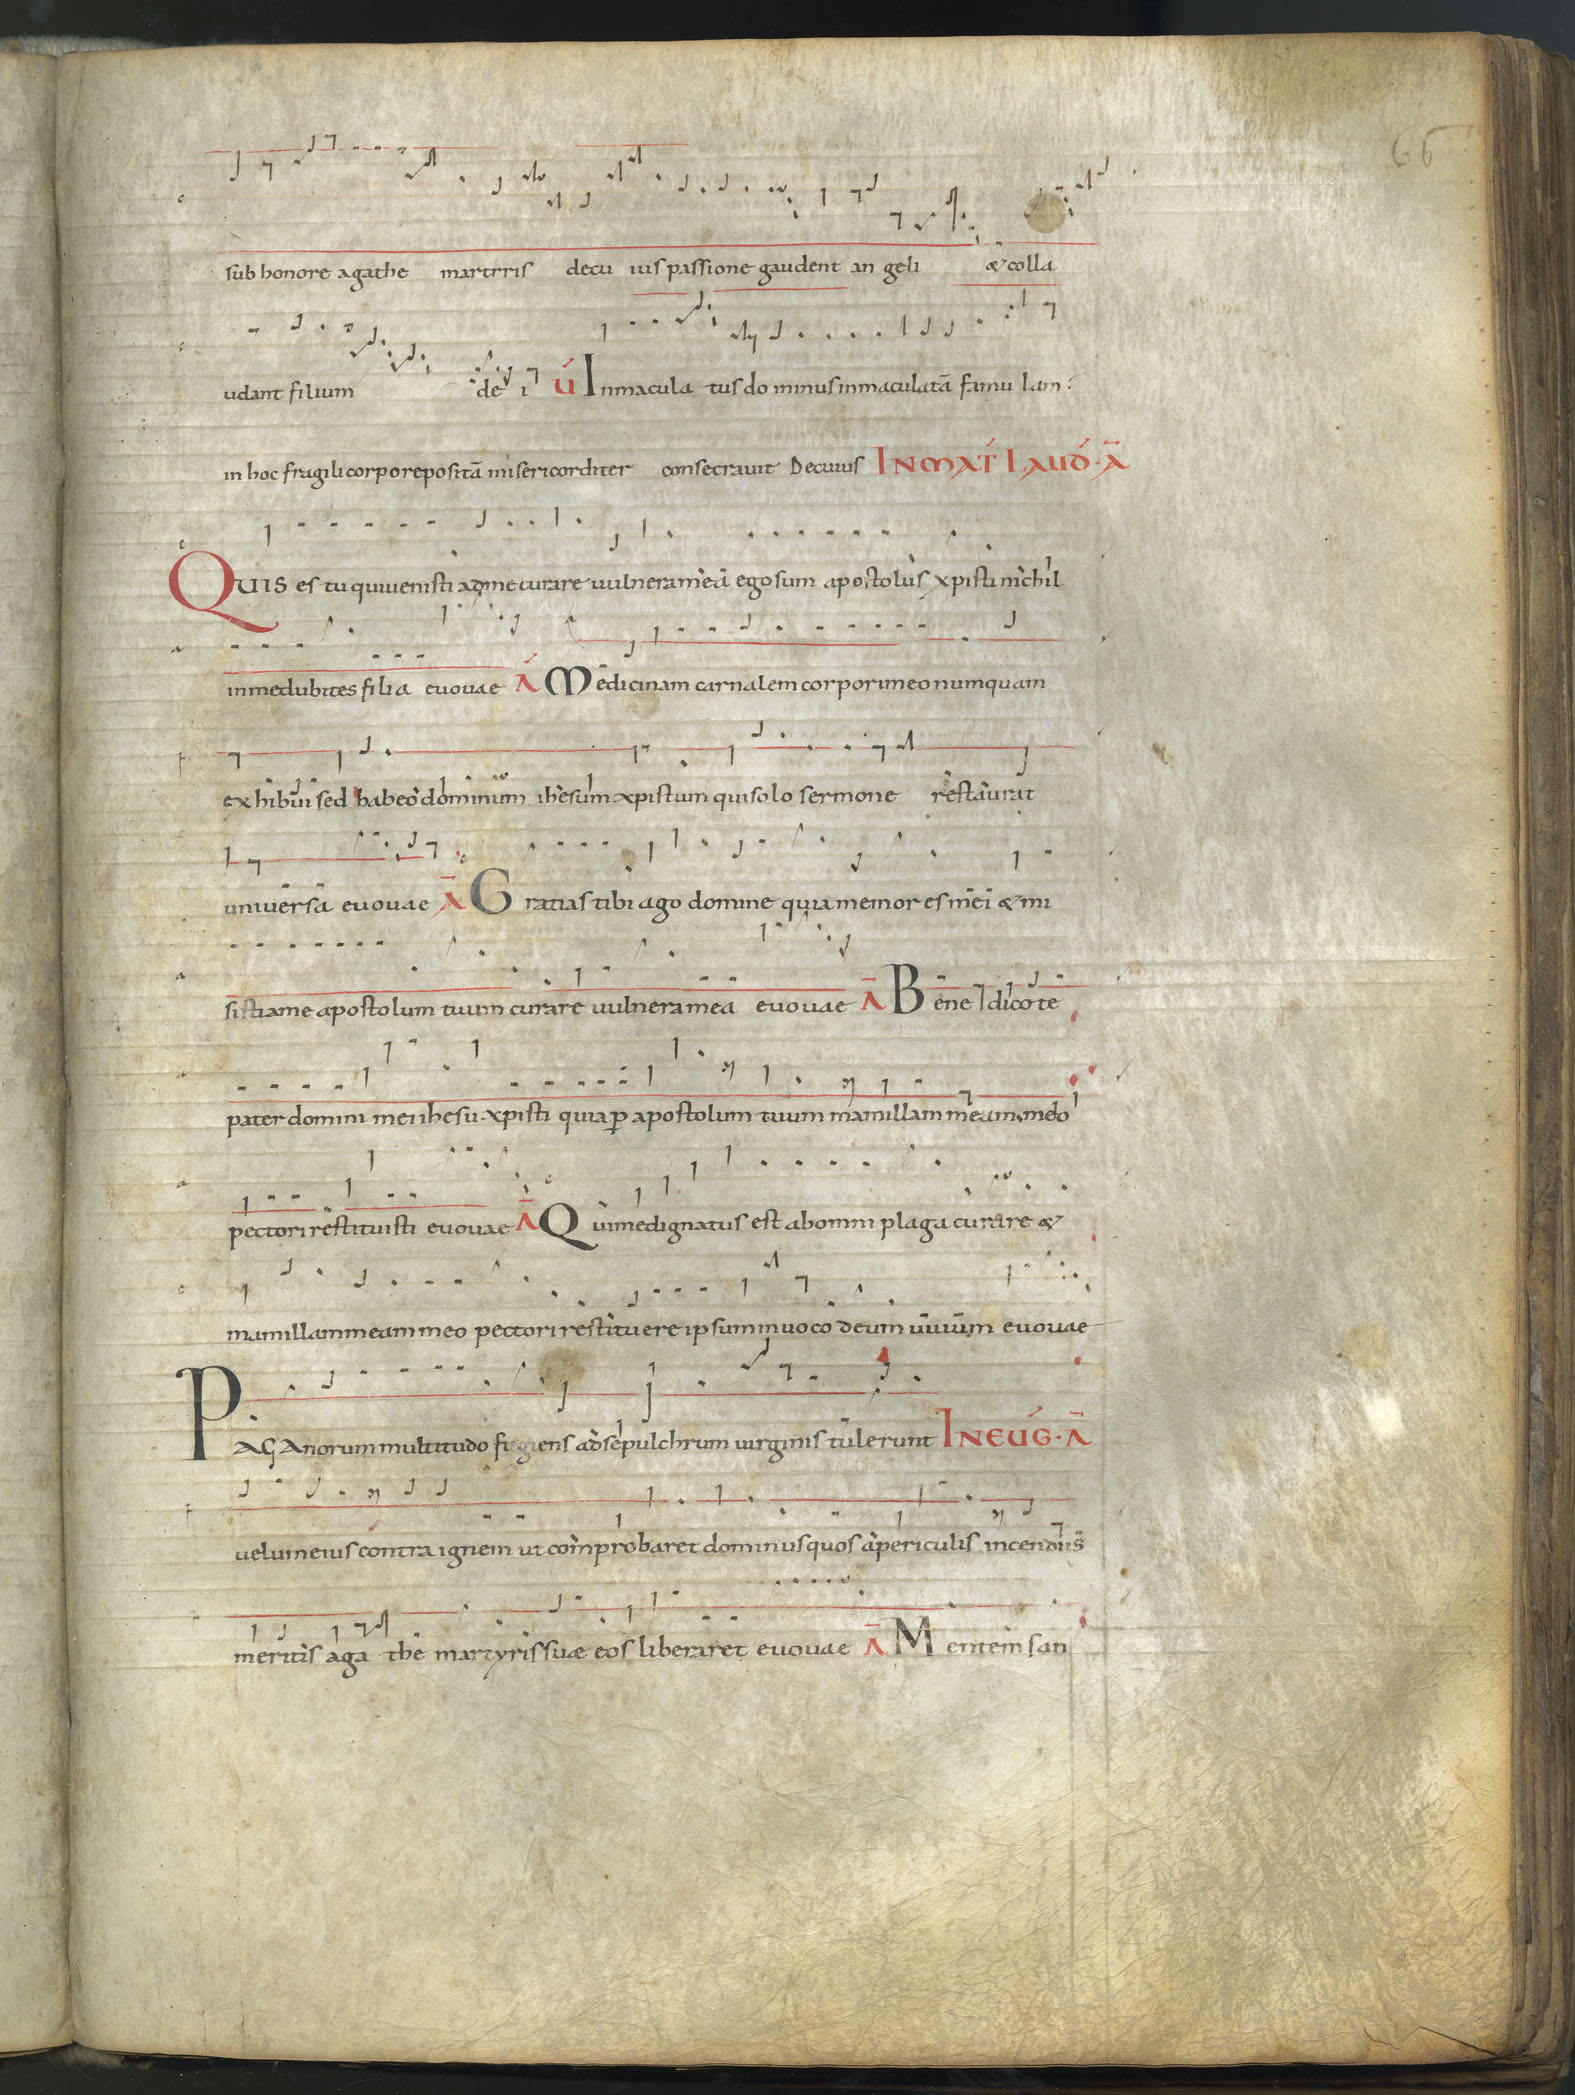 66
sub honore agathe martiris decu ius passione gaudent an geli & colla
udant filium de i V̄ Inmacula tus do minus inmaculatā famu lam:
in hoc fragili corpore positā misericorditer consecravit De cuius IN MAT LAUD · A
QUIS es tu qui venisti ad me curare vulnera meā ego sum apostolus xpisti nichil
in me dubites filia evovae A Medicinam carnalem corpori meo numquam
exhibui sed habeo dominum ihesum xpistum qui solo sermone restaurat
universa evovae A Gratias tibi ago domine quia memor es mei & mi
sisti a me apostolum tuum curare vulnera mea evovae A Bene dico te
pater domini mei ihesu xpisti quia ꝑ apostolum tuum mamillam meam meo
pectori restituisti evovae A Qui me dignatus est ab omni plaga curare &
mamillam meam meo pectori restituere ipsum invoco deum vivum evovae
PAGAnorum multitudo fugiens ad sepulchrum virginis tulerunt IN EUG · A
velum eius contra ignem ut comprobaret dominus quos a periculis incendiis
meritis aga the martyris suae eos liberaret evovae A Mentem san